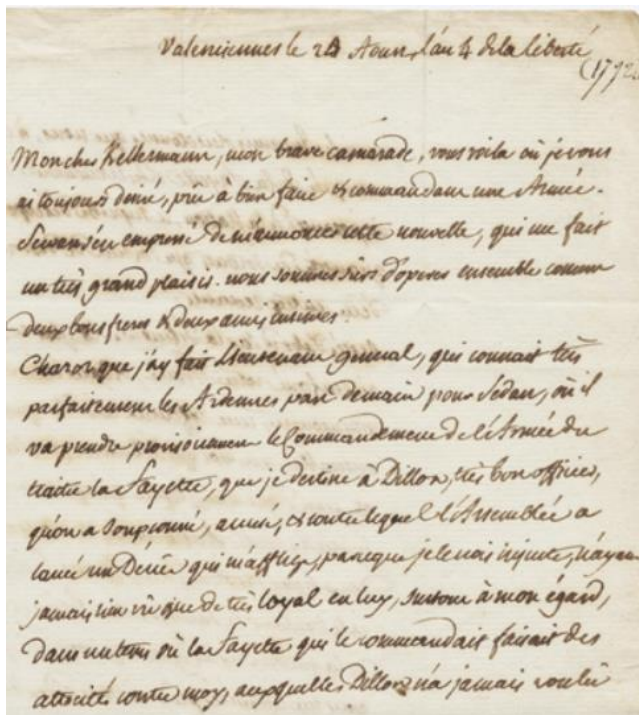 Valenciennes le 24 Aoust, l'an 4 de la liberté
(1792)
Mon cher Kellermann, mon brave camarade, vous voila où je vous
ai toujours désiré, prêt à bien faire & commandant une Armée.
Servan s'est empressé de m'annoncer cette nouvelle, qui me fait
un très grand plaisir. nous sommes sûrs d'opérer ensemble comme
deux bons freres & deux amis intimes.
Chazot que j'ay fait Lieutenant général, qui connait très
parfaitement les Ardennes part demain pour Sédan, où il
va prendre provisoirement le Commandement de l'Armée du
traitre la Fayette, que je destine à Dillon, très bon officier,
qu'on a soupçonné, accusé, & contre lequel l'Assemblée a
lancé un Décret qui m'afflige, parceque je le sais injuste, n'ayant
jamais rien vû que de très loyal en luy, surtout à mon égard,
dans un tems où la Fayette qui le commandait faisait des
atrocités contre moy, auxquelles Dillon n'a jamais voulu